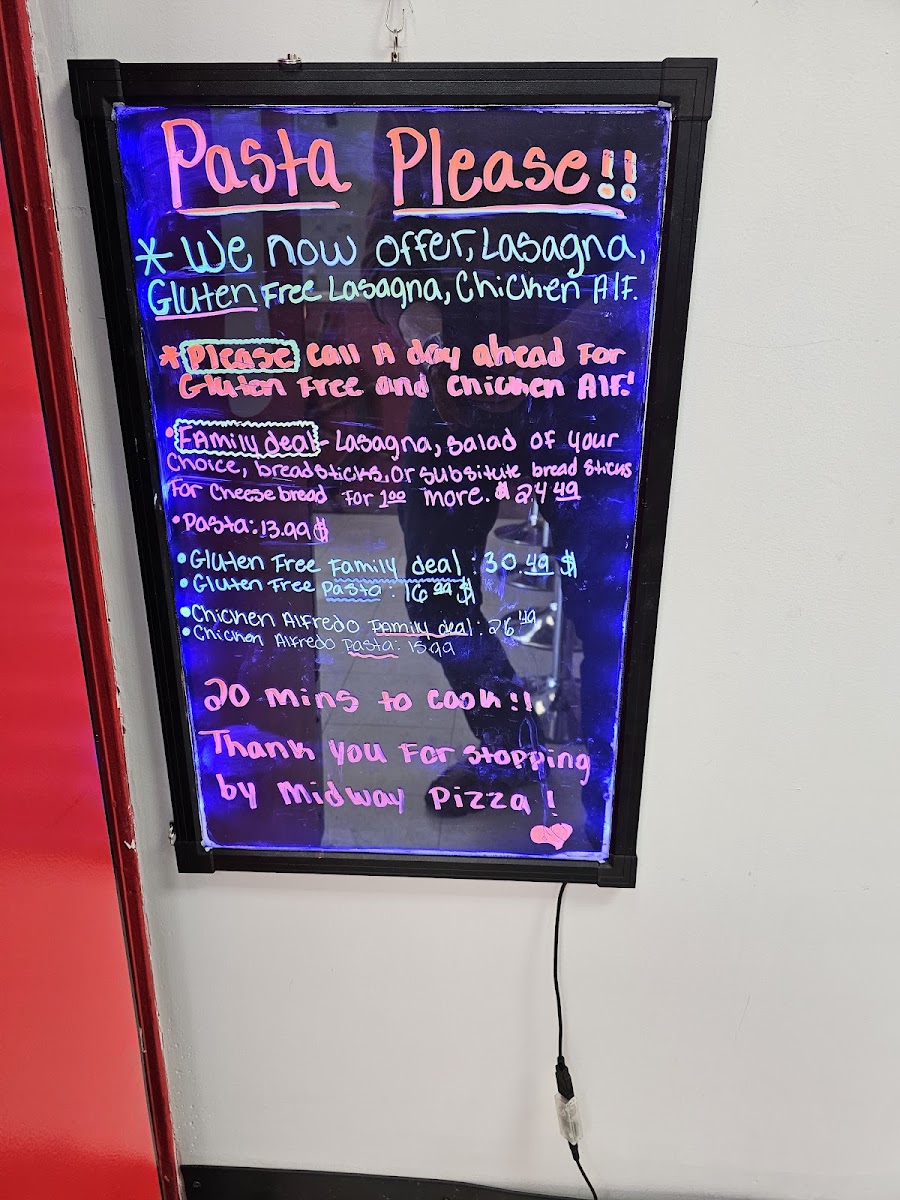 Pasta Please!!
* We now offer, Lasagna,
Gluten Free Lasagna, Chicken Alf.
* Please call A day ahead For
Gluten Free and Chicken Alf!
• Family deal - Lasagna, salad of your
Choice, breadsticks, or subsitute bread sticks
For Cheesebread For 1.00 more. $24.49
• Pasta: 13.99$
• Gluten Free Family deal: 30.49$
• Gluten Free Pasta: 16.99$
• Chicken Alfredo Family deal: 26.49
• Chicken Alfredo Pasta: 15.99
20 mins to cook!!
Thank You For stopping
by Midway Pizza!